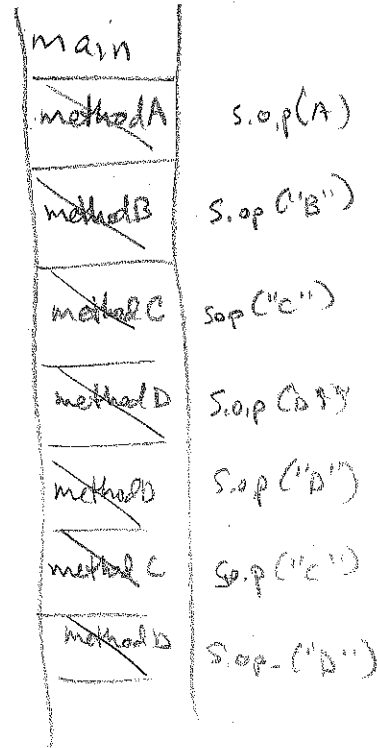 main
methodA s.o.p(A)
methodB S.op("B")
method C sop("C")
method D S.o.p(D")
methodD S.o.p("D")
method C So.p("C")
methodD S.op-("D")